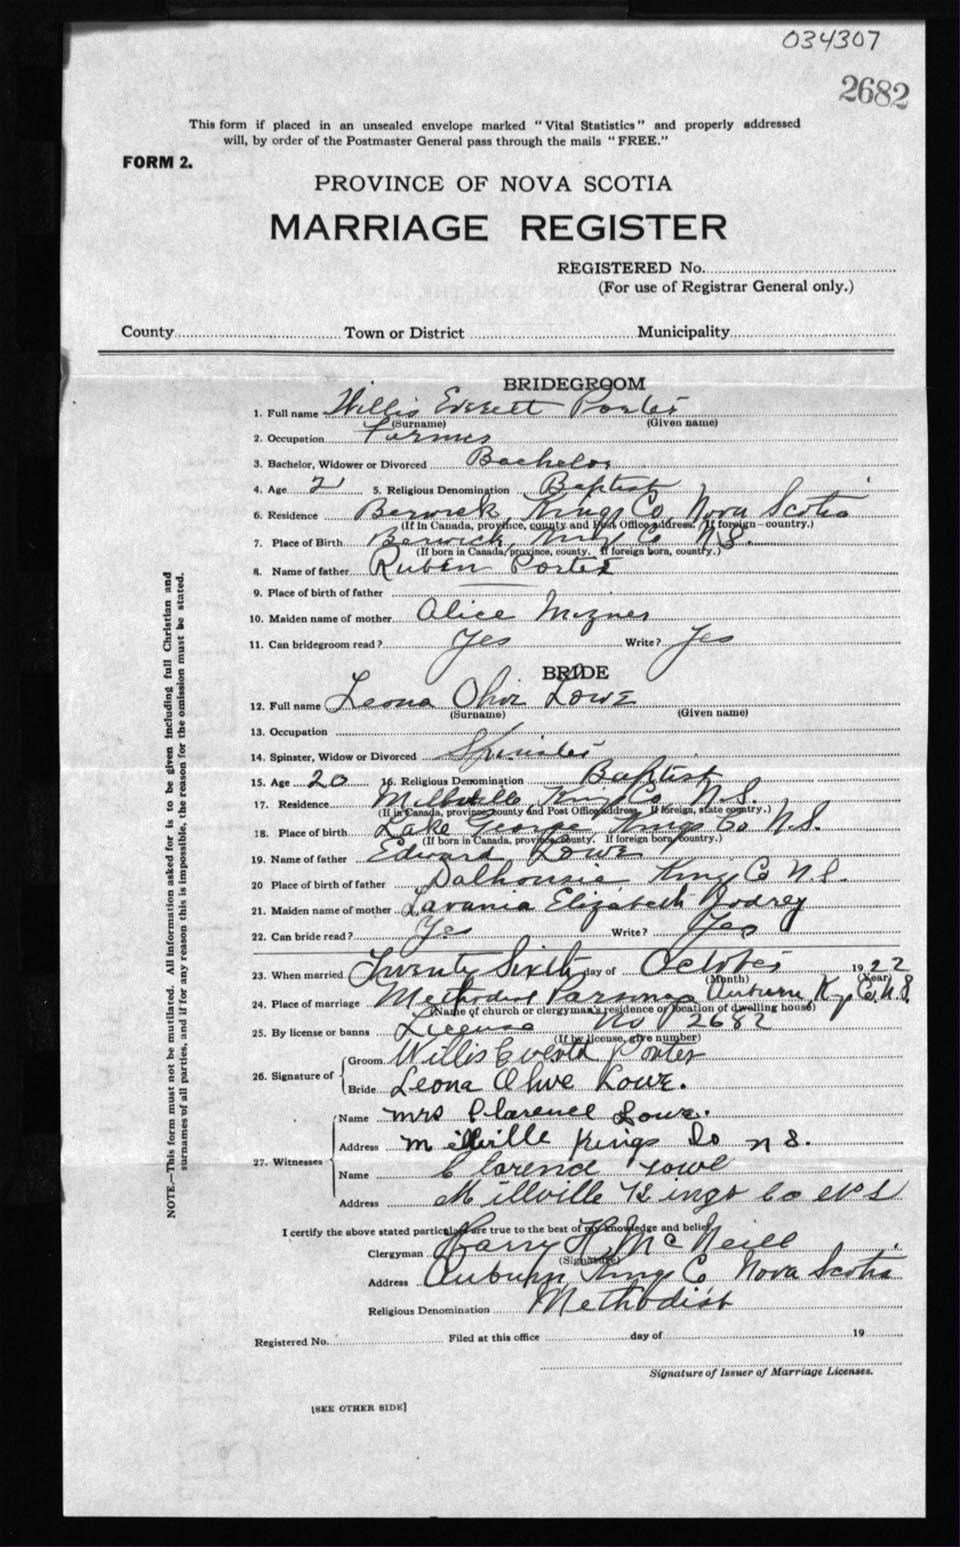 034307
2682
This form if placed in an unsealed envelope marked "Vital Statistics" and properly addressed
will, by order of the Postmaster General pass through the mails "FREE."
FORM 2.
PROVINCE OF NOVA SCOTIA
MARRIAGE REGISTER
REGISTERED No.
(For use of Registrar General only.)
County Town or District Municipality
BRIDEGROOM
1. Full name Willis Everett Porter
(Surname) (Given name)
2. Occupation Farmer
3. Bachelor, Widower or Divorced Bachelor
4. Age 21 5. Religious Denomination Baptist
6. Residence Berwick, Kings Co, Nova Scotia
(If In Canada, province, county and Post Office address. If foreign—country.)
7. Place of Birth Berwick, Kings Co N.S.
(If born in Canada, province, county. If foreign born, country.)
8. Name of father Ruben Porter
9. Place of birth of father
10. Maiden name of mother Alice
11. Can bridegroom read? Yes Write? Yes
BRIDE
12. Full name Leona Olive Lowe
(Surname) (Given name)
13. Occupation
14. Spinster, Widow or Divorced Spinster
15. Age 20 16. Religious Denomination Baptist
17. Residence Millville, Kings Co, N.S.
(If in Canada, province, county and Post Office address. If foreign, state country.)
18. Place of birth Lake George, Kings Co N.S.
(If born in Canada, province, county. If foreign born, country.)
19. Name of father Edward Lowe
20 Place of birth of father Dalhousie Kings Co N.S.
21. Maiden name of mother Lavania Elizabeth Godrey
22. Can bride read? Yes Write? Yes
23. When married Twenty Sixth day of October 1922
(Month) (Year)
24. Place of marriage Methodist Parsonage Auburn, Kings Co. N.S.
(Name of church or clergyman's residence or location of dwelling house)
25. By license or banns License No 2682
(If by license, give number)
26. Signature of Groom Willis Everett Porter
Bride Leona Olive Lowe.
27. Witnesses Name Mrs Clarence Lowe.
Address Millville Kings Co N S.
Name Clarence Lowe
Address Millville Kings Co N S
I certify the above stated particulars are true to the best of my knowledge and belief.
Clergyman Harry H. McNeill
(Signature)
Address Auburn, Kings Co Nova Scotia
Religious Denomination Methodist
Registered No. Filed at this office day of 19
Signature of Issuer of Marriage Licenses.
[SEE OTHER SIDE]
NOTE.—This form must not be mutilated. All information asked for is to be given including full Christian and
surnames of all parties, and if for any reason this is impossible, the reason for the omission must be stated.